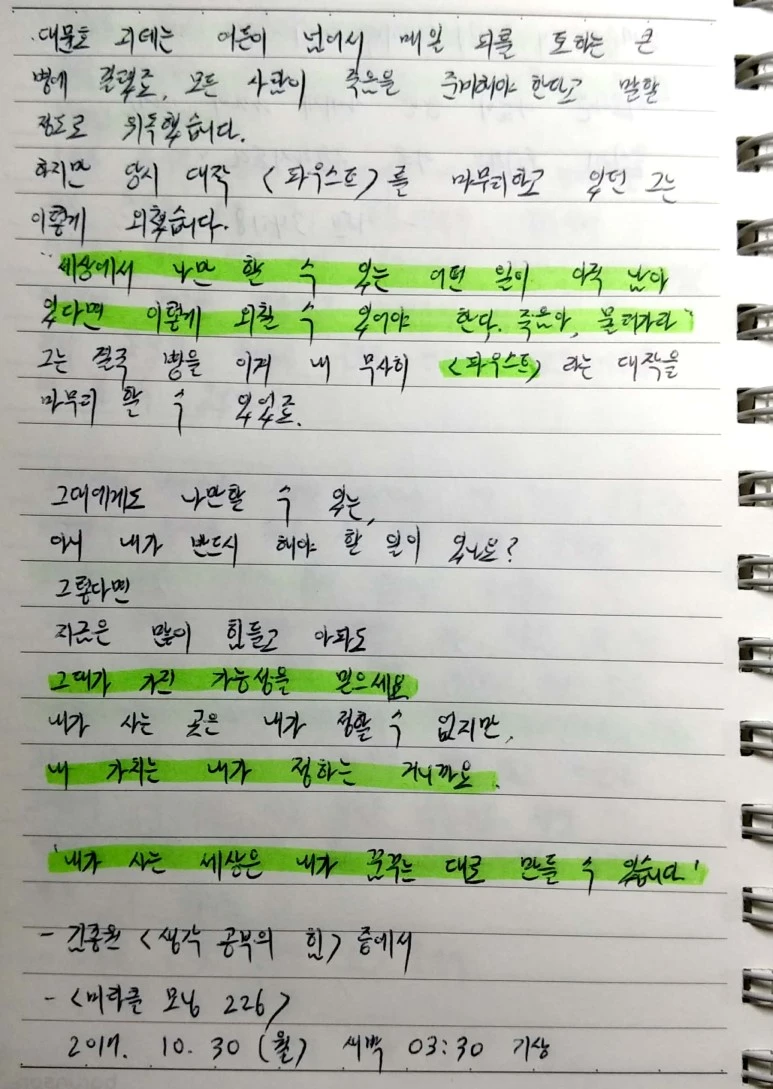 대문호 괴테는 여든이 넘어서 매일 피를 토하는 큰
병에 걸렸죠, 모든 사람이 죽음을 준비해야 한다고 말할
정도로 위독했습니다.
하지만 당시 대작 <파우스트>를 마무리하고 있던 그는
이렇게 외쳤습니다.
"세상에서 나만 할 수 있는 어떤 일이 아직 남아
있다면 이렇게 외칠 수 있어야 한다. 죽음아, 물러가라"
그는 결국 병을 이겨 내 무사히 <파우스트>라는 대작을
마무리 할 수 있었죠.
그대에게도 나만할 수 있는,
아니 내가 반드시 해야 할 일이 있나요?
그렇다면
지금은 많이 힘들고 아파도
그대가 가진 가능성을 믿으세요
내가 사는 곳은 내가 정할 수 없지만,
내 가치는 내가 정하는 거니까요.
'내가 사는 세상은 내가 꿈꾸는 대로 만들 수 있습니다.'
- 김종원 <생각 공부의 힘> 중에서
- <미라클 모닝 226>
2017. 10. 30 (월) 새벽 03:30 기상